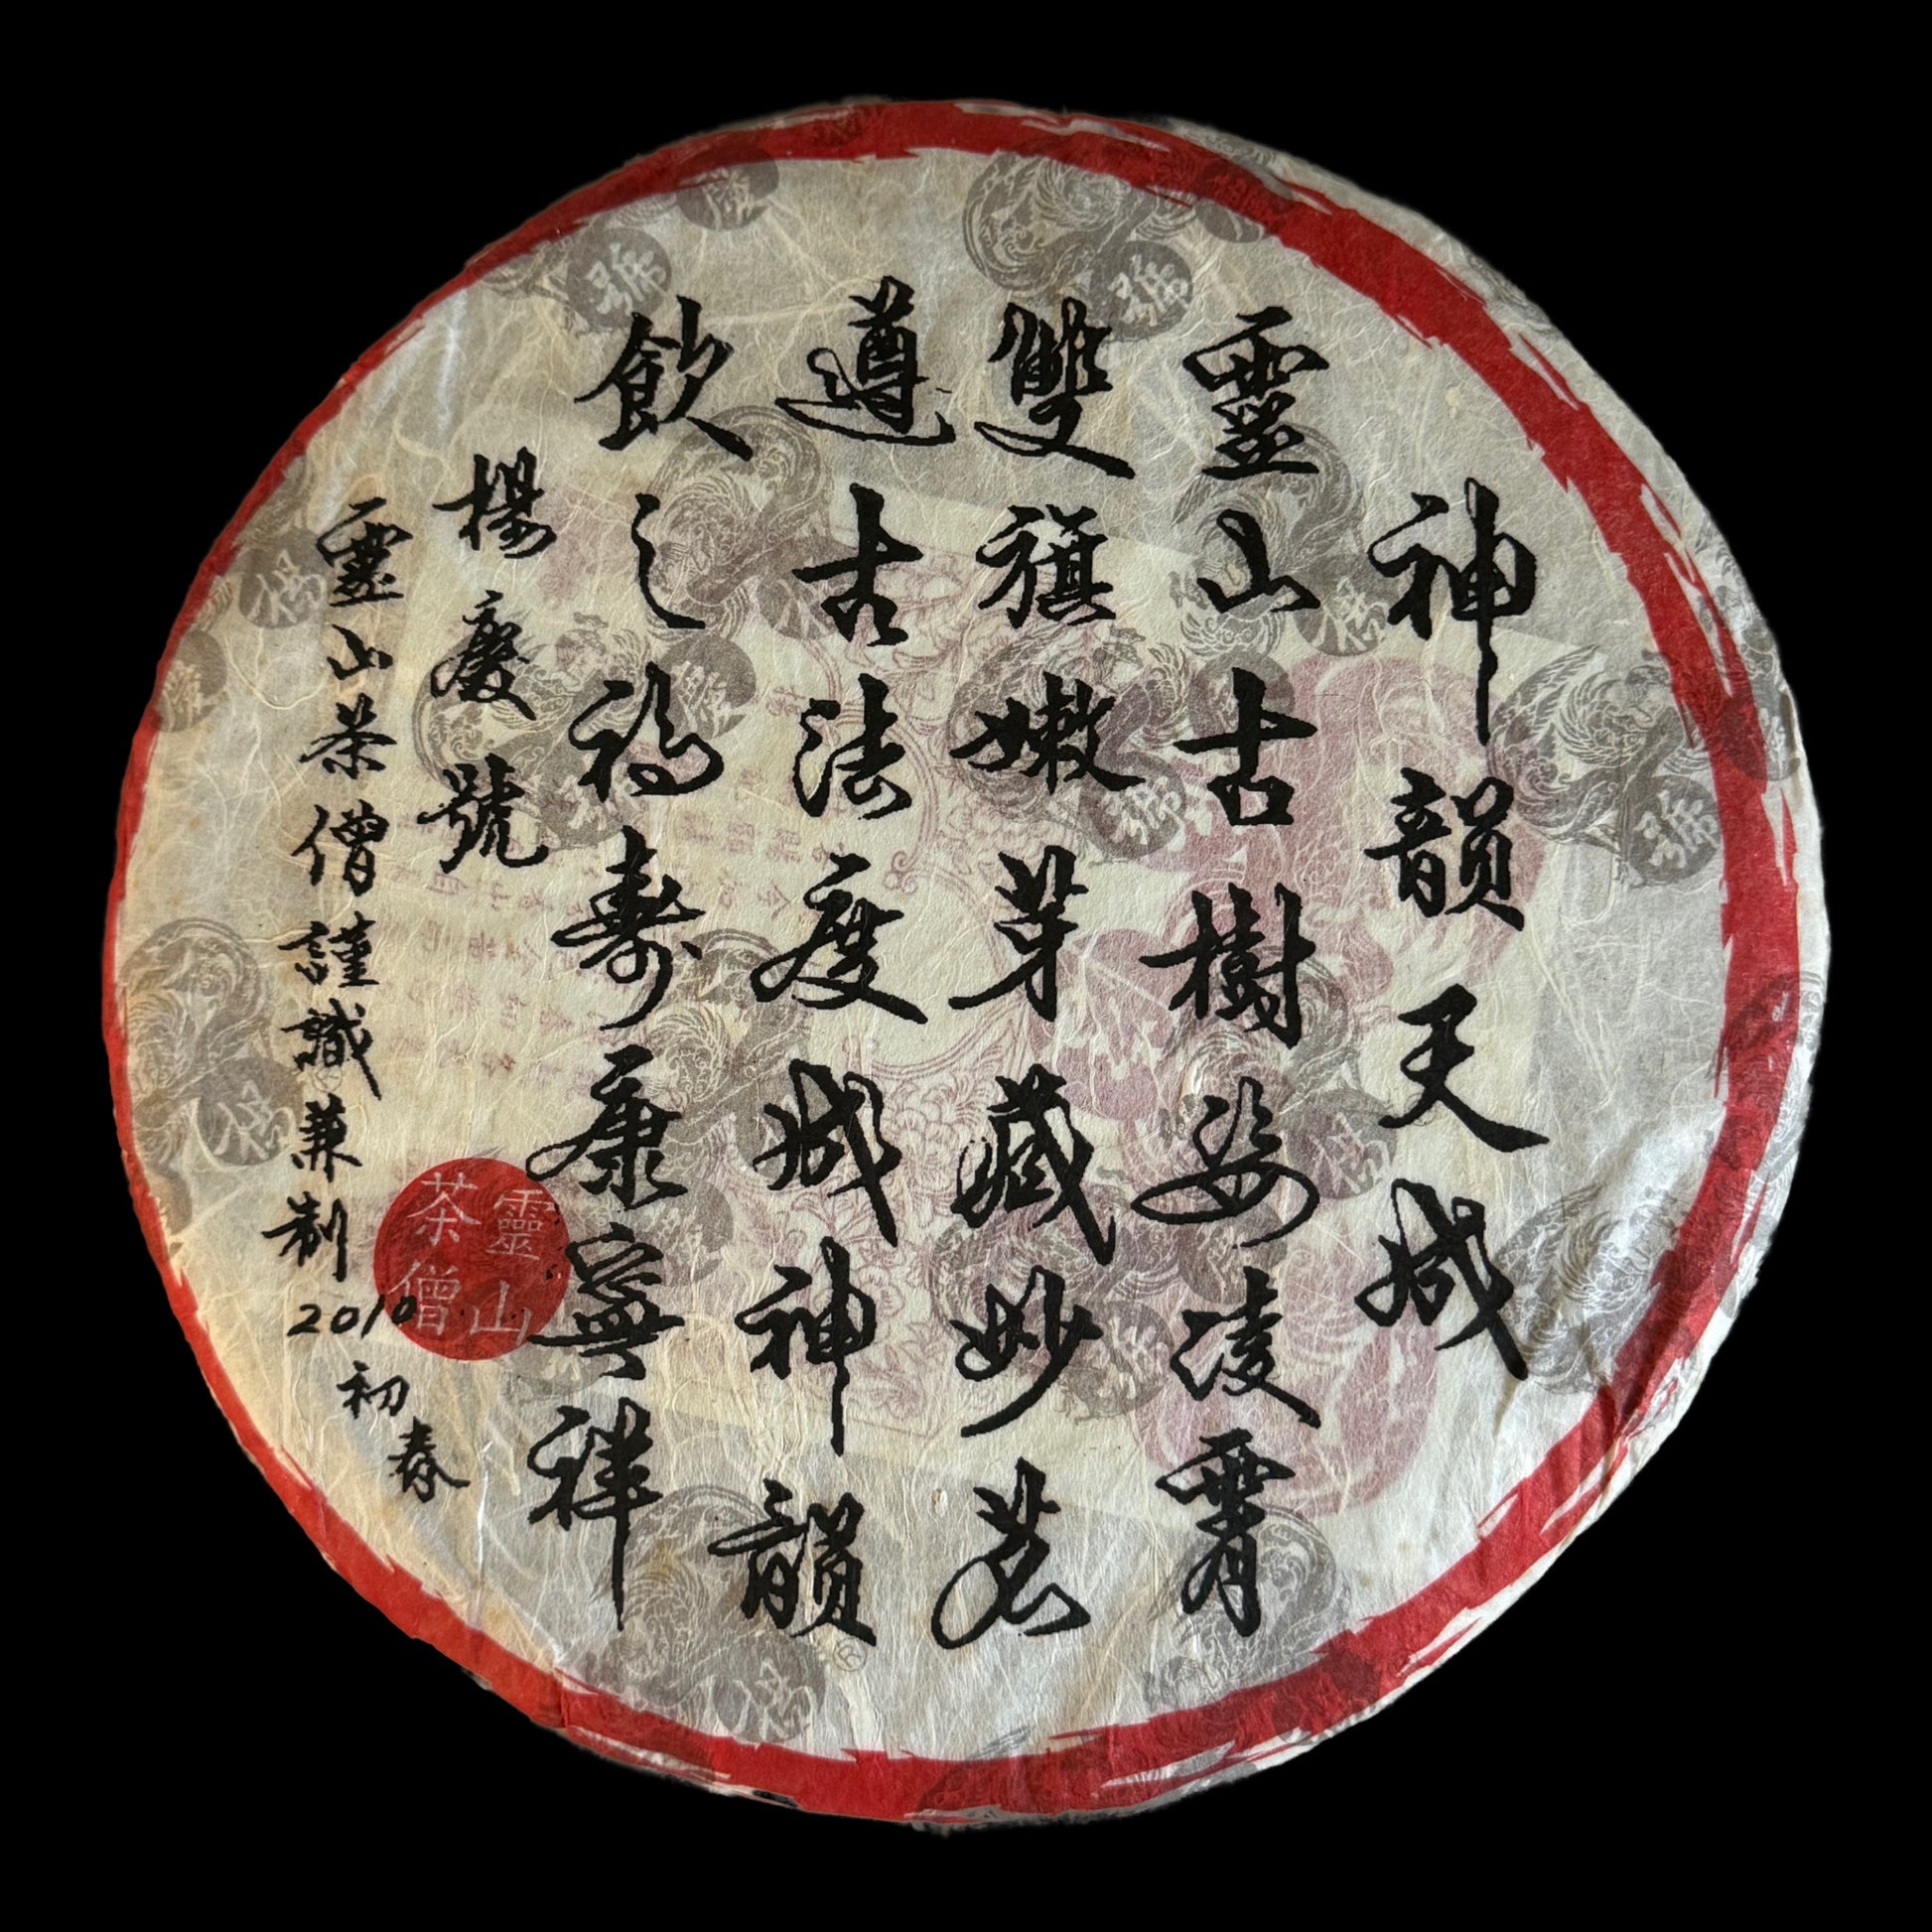 神韻天成
靈山古樹姿淩霄
雙旗嫩芽藏妙茗
遵古法度成神韻
飲之福壽康寧祥
楊慶號
靈山茶僧謹識兼制
2010初春
靈山
茶僧
號
號
號